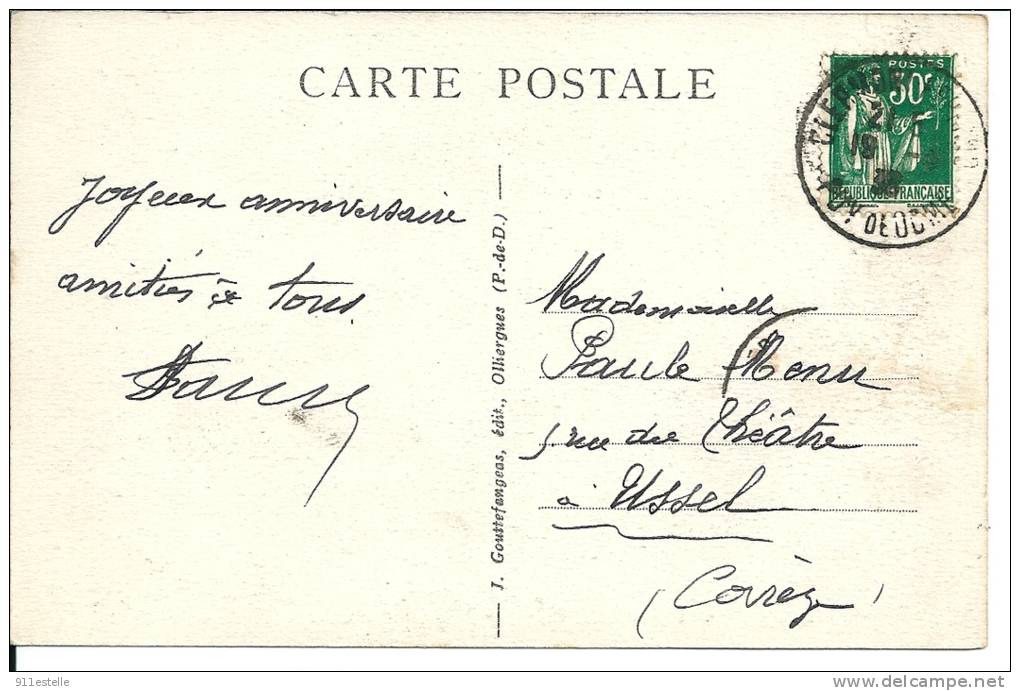 CARTE POSTALE
POSTES
30c
REPUBLIQUE FRANÇAISE
Joyeux anniversaire
amitiés à tous
J. Gouttefangeas, édit., Olliergues (P.-de-D.)
Mademoiselle
Paule Menu
rue du Théâtre
à Ussel
(Corrèze)
911estelle
www.delcampe.net